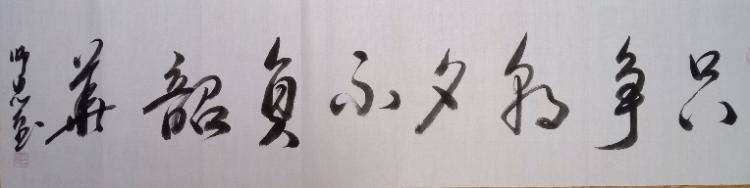 只争朝夕不负韶华